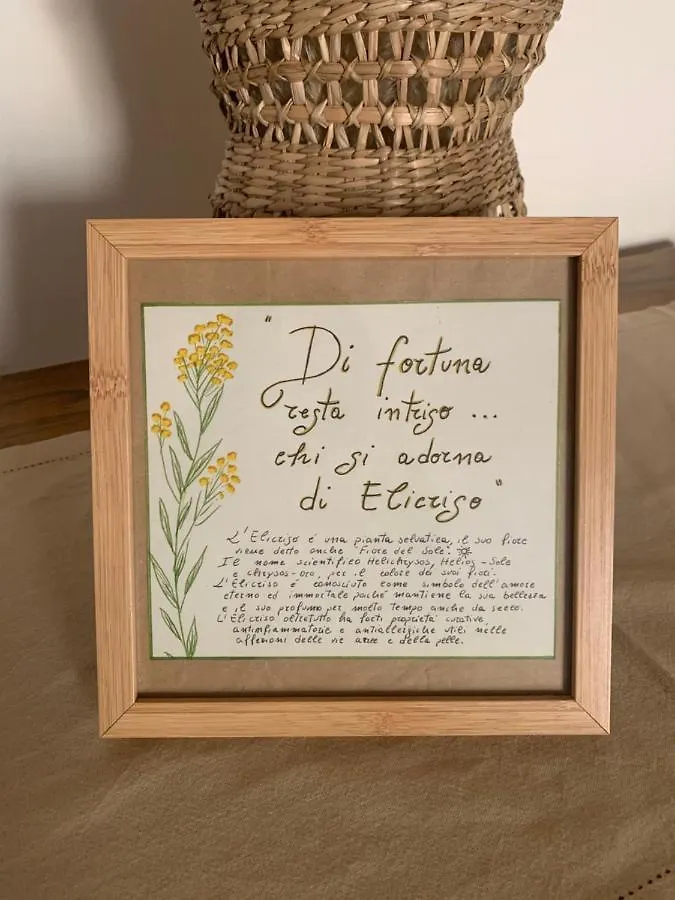 "Di fortuna
resta intriso ...
chi si adorna
di Elicriso"
L'Elicriso é una pianta selvatica, il suo fiore
viene detto anche "Fiore del Sole".
Il nome scientifico Helichrysos, Helios - Sole
e chrysos - oro, per il colore dei suoi fiori.
L'Elicriso é conosciuto come simbolo dell'amore
eterno ed immortale poiché mantiene la sua bellezza
e il suo profumo per molto tempo anche da secco.
L'Elicriso oltretutto ha forti proprietà curative,
antinfiammatorie e antiallergiche utili nelle
affezioni delle vie aeree e della pelle.